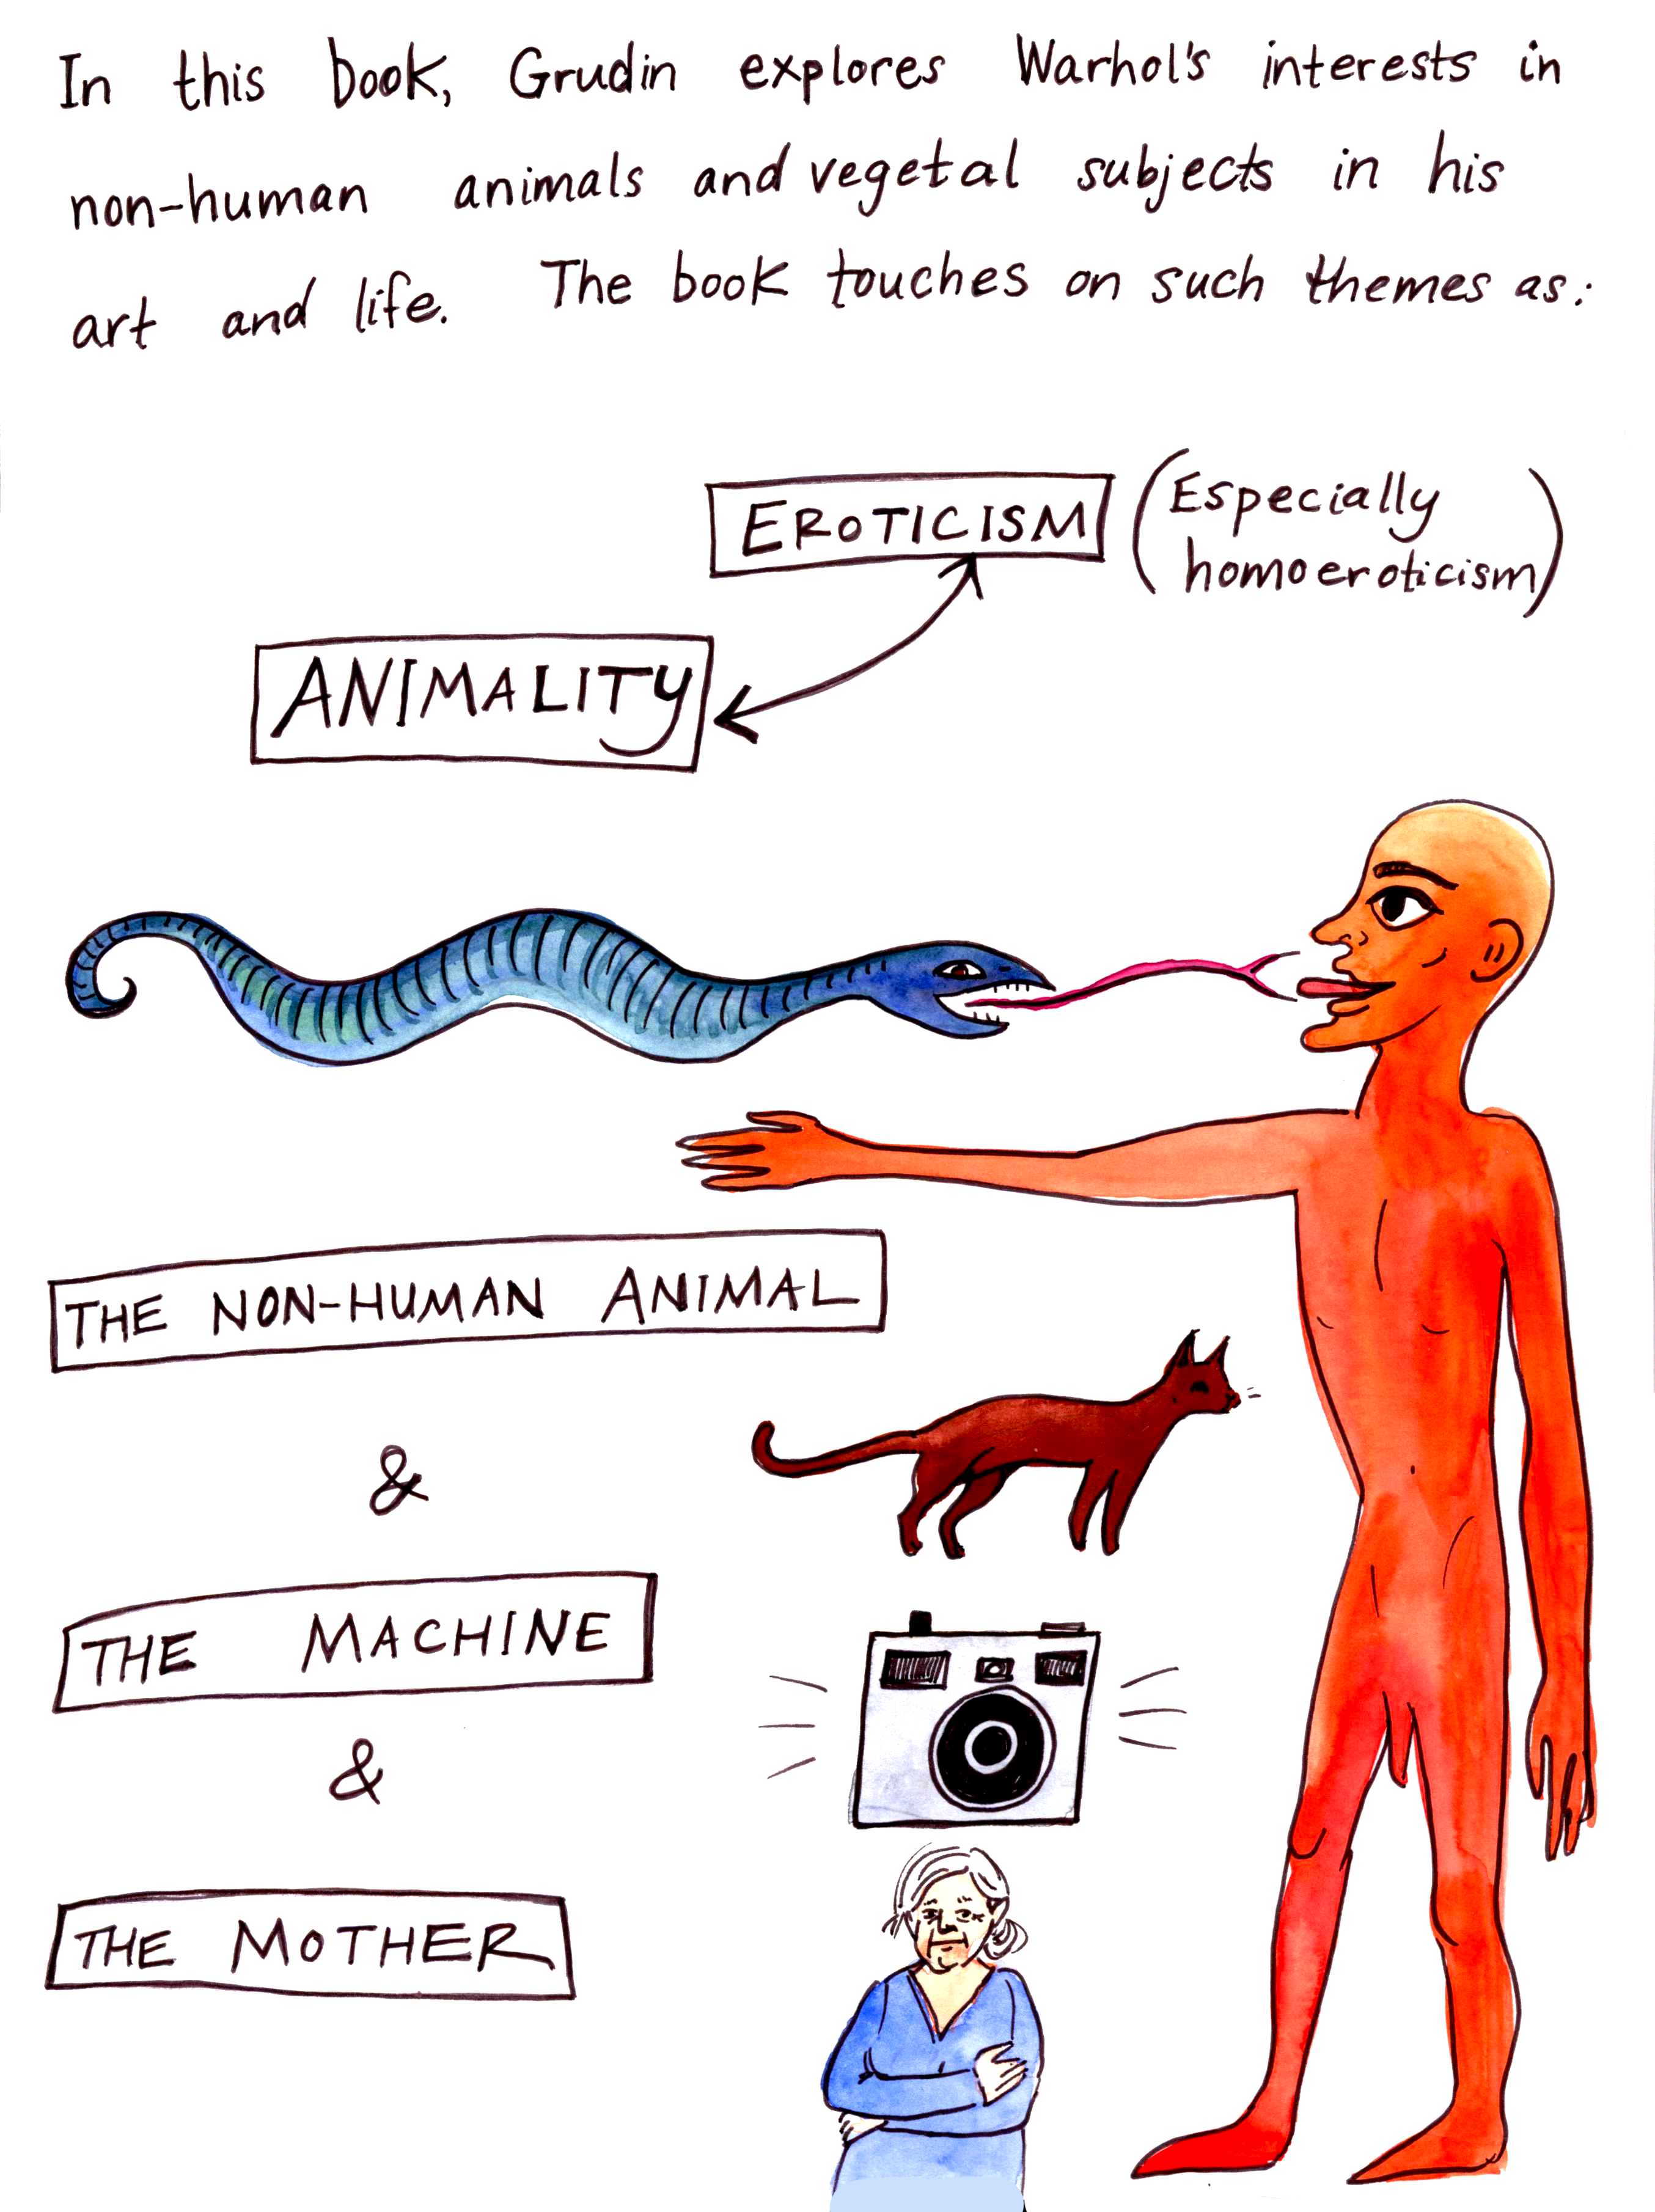 In this book, Grudin explores Warhol's interests in
non-human animals and vegetal subjects in his
art and life. The book touches on such themes as:
EROTICISM (Especially
homoeroticism)
ANIMALITY
THE NON-HUMAN ANIMAL
&
THE MACHINE
&
THE MOTHER